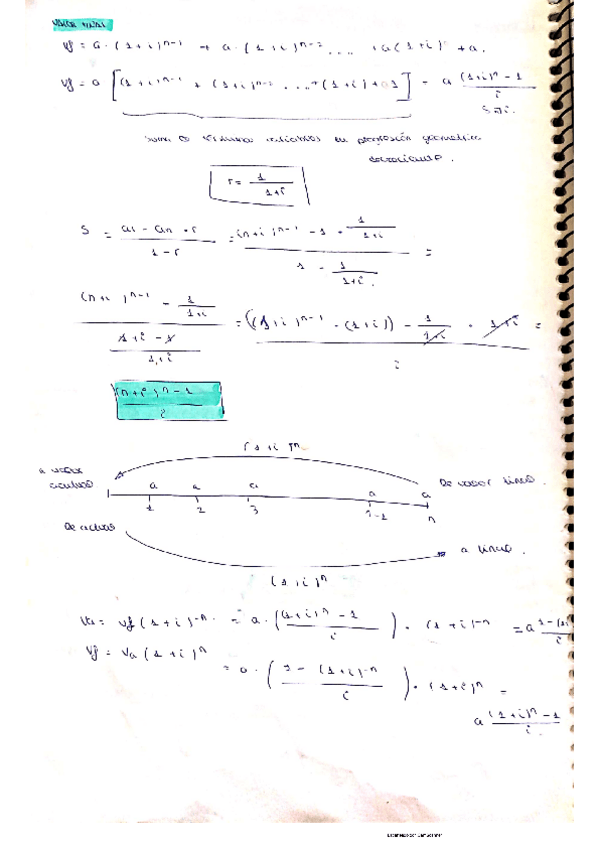 VALOR FINAL
Vf = a · (1+i)ⁿ⁻¹ + a · (1+i)ⁿ⁻² .... + a(1+i) + a.
Vf = a [(1+i)ⁿ⁻¹ + (1+i)ⁿ⁻² ....+(1+i)+1] = a (1+i)ⁿ - 1 / i
Suma términos en progresión geométrica
decreciente.
r = 1 / 1+i
S = a1 - an · r / 1 - r = (n+i)ⁿ⁻¹ - 1 · 1 / 1+i / 1 - 1 / 1+i. =
(n+i)ⁿ⁻¹ - 1 / 1+i / 1+i - 1 / 1+i = ((1+i)ⁿ⁻¹ · (1+i)) - 1 / 1+i · 1+i / i =
(n+i)ⁿ - 1 / i
(1+i)ⁿ
a valor actual
De valor final.
a a a a a
1 2 3 n-1 n
De actual
a final.
(1+i)ⁿ
Va = Vf (1+i)⁻ⁿ = a · ((1+i)ⁿ - 1 / i) · (1+i)⁻ⁿ = a 1-(1
Vf = Va (1+i)ⁿ = a · (1 - (1+i)⁻ⁿ / i) · (1+i)ⁿ =
a (1+i)ⁿ - 1 / i.